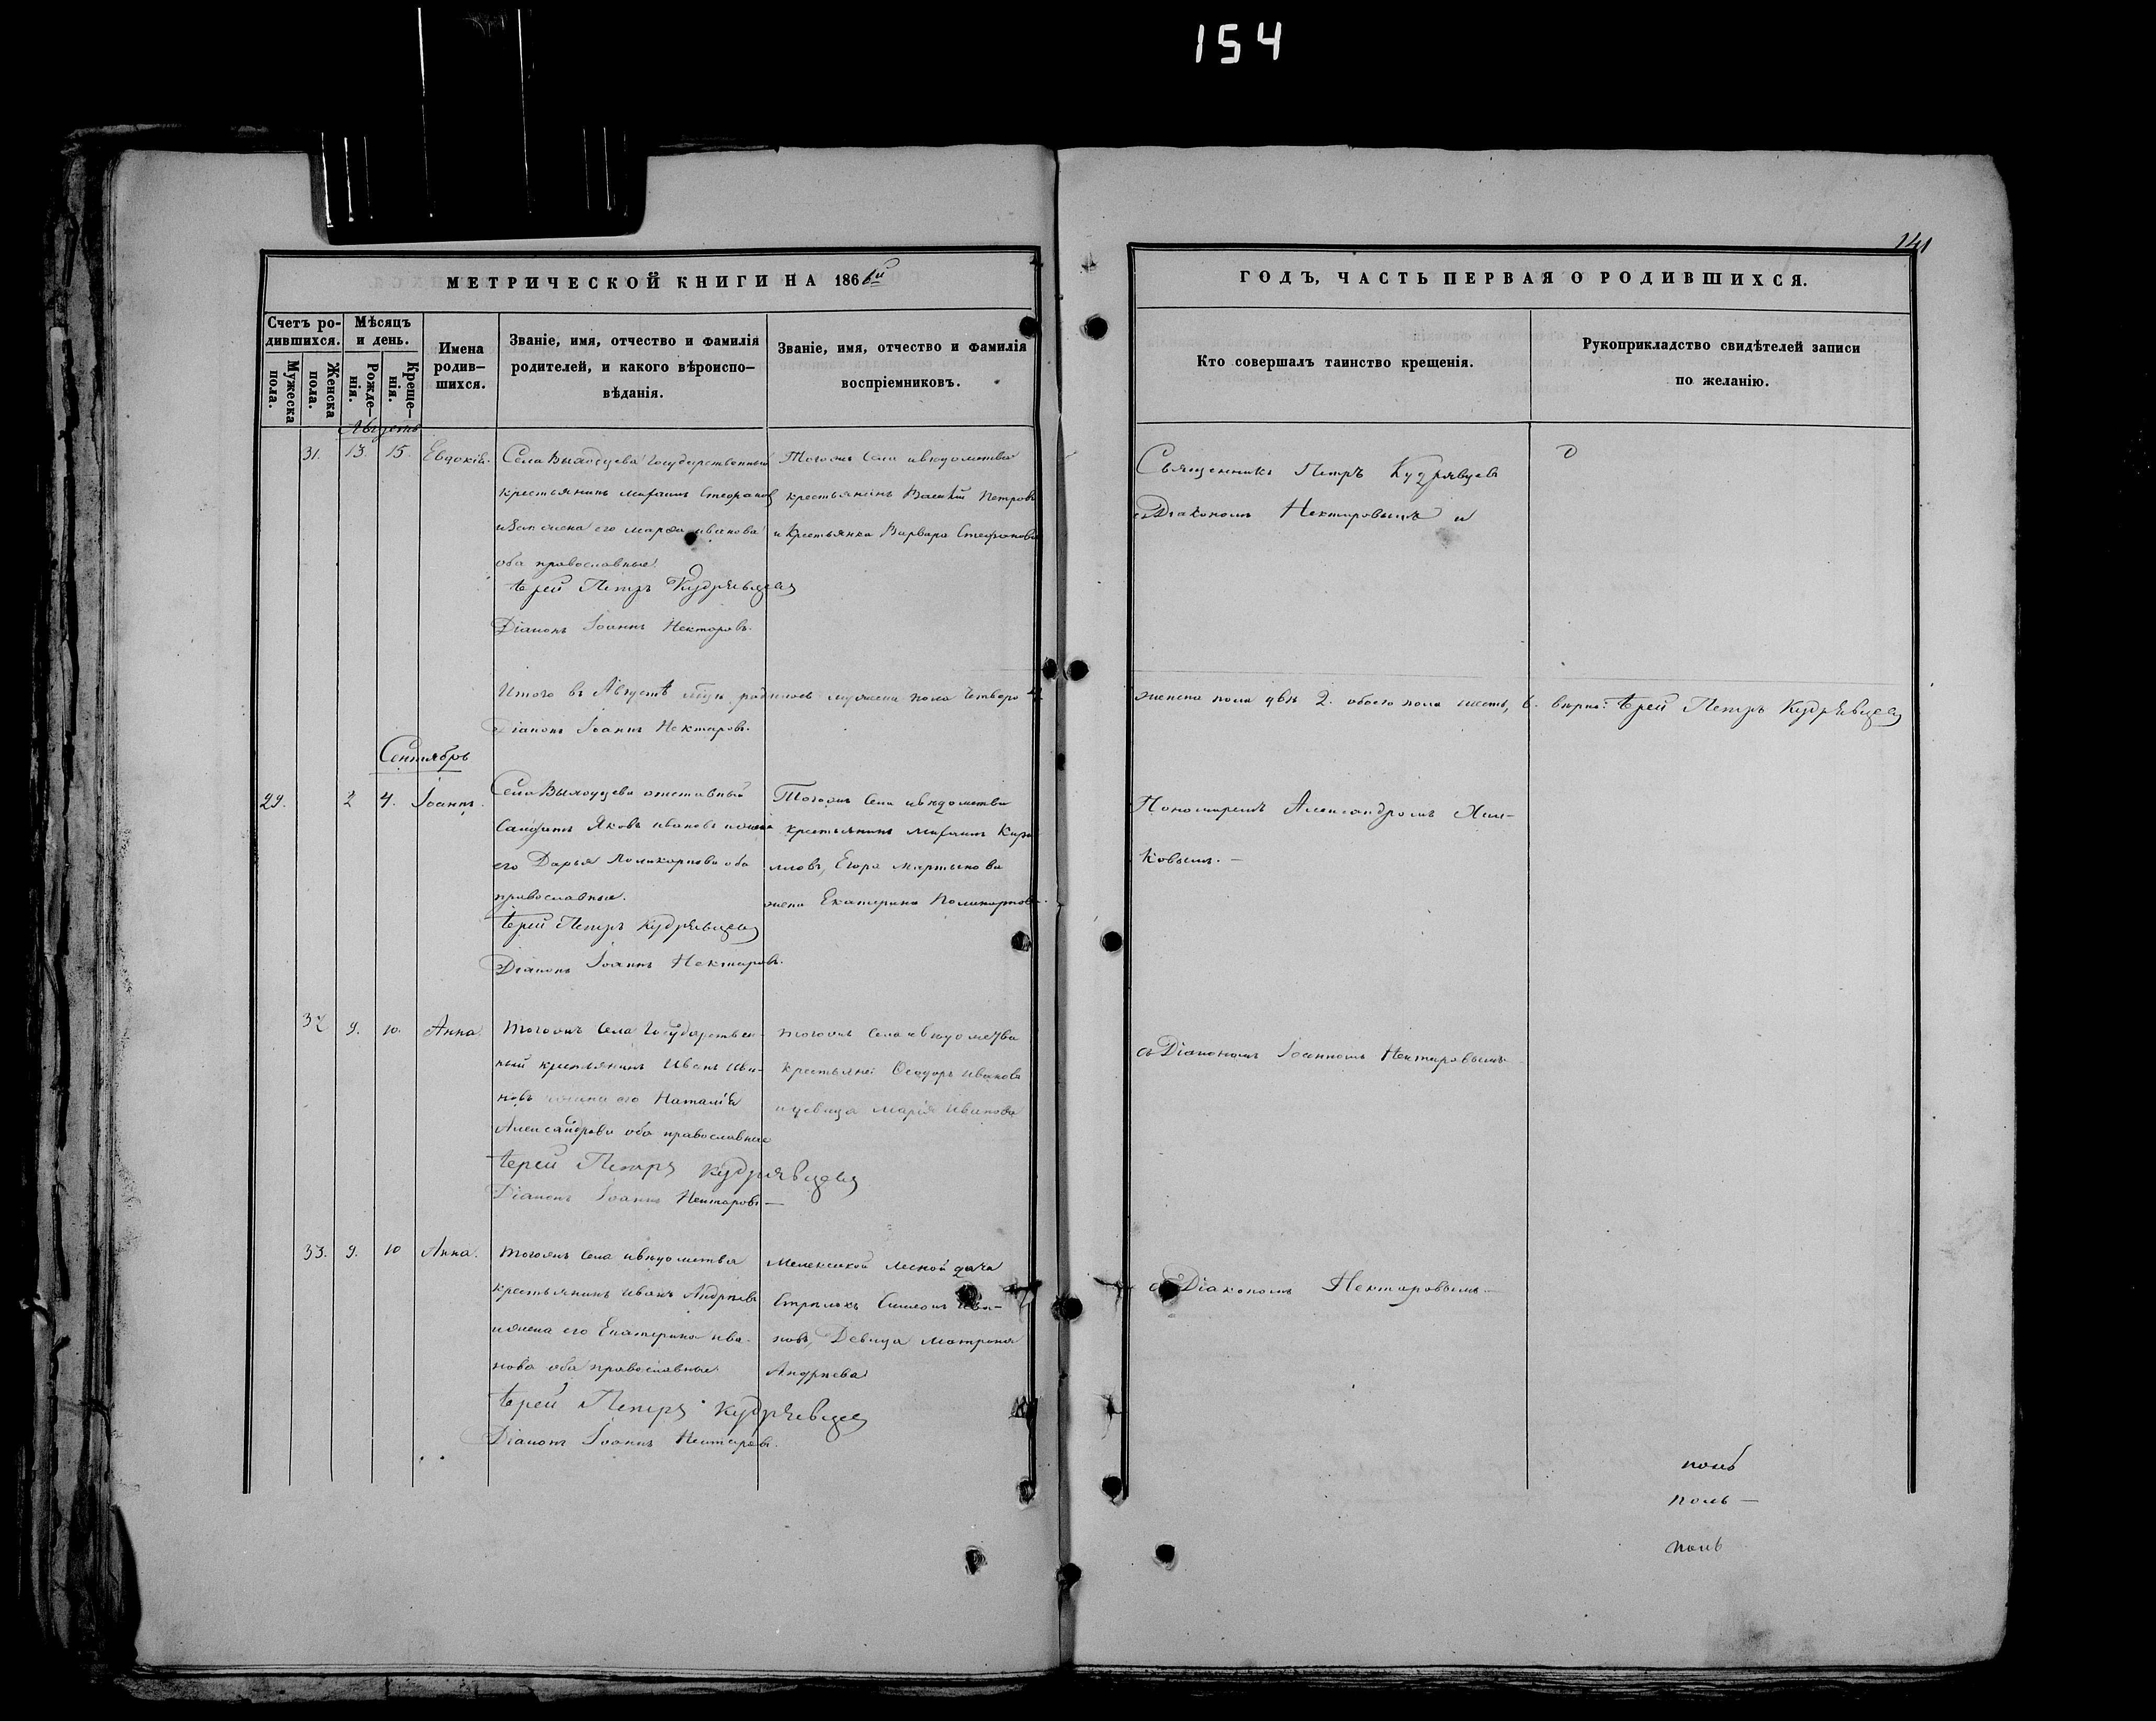 154
141
МЕТРИЧЕСКОЙ КНИГИ НА 1866й
ГОДЪ, ЧАСТЬ ПЕРВАЯ О РОДИВШИХСЯ.
Счетъ ро-
дившихся.
Мужеска
пола.
Женска
пола.
Мѣсяцъ
и день.
Рожде-
нія.
Креще-
нія.
Имена
родив-
шихся.
Званіе, имя, отчество и фамилія
родителей, и какого вѣроиспо-
вѣданія.
Званіе, имя, отчество и фамилія
воспріемниковъ.
Кто совершалъ таинство крещенія.
Рукоприкладство свидѣтелей записи
по желанію.
Августъ
31. 13. 15. Евдокія.
Села Государственный
крестьянинъ
жена его Марѳа Иванова
оба православные
Іерей Петръ Кудрявцевъ
Діаконъ Іоаннъ Нектаровъ.
Тогожъ Села и вѣдомства
крестьянинъ Василій Петровъ
и Крестьянка Варвара Стефанова
Священникъ Петръ Кудрявцевъ
съ Діакономъ Нектаровымъ и
Итого въ Августѣ родилось мужеска пола четверо 4
женска пола двѣ 2. обоего пола шесть, 6. вѣрно: Іерей Петръ Кудрявцевъ
Діаконъ Іоаннъ Нектаровъ.
Сентябрь
29. 2 4. Іоаннъ.
Села отставный
Солдатъ Яковъ Ивановъ и жена
его Дарья Поликарпова оба
православные.
Іерей Петръ Кудрявцевъ
Діаконъ Іоаннъ Нектаровъ.
Тогожъ Села и вѣдомства
крестьянинъ Кири
лловъ, Егора Мартынова
жена Екатерина Поликарпова.
Пономаремъ Александромъ
ковымъ. —
32 9. 10. Анна.
Тогожъ Села Государствен-
ный крестьянинъ Иванъ Ива-
новъ жена его Наталія
Александрова оба православные
Іерей Петръ Кудрявцевъ
Діаконъ Іоаннъ Нектаровъ —
Тогожъ Села и вѣдомства
крестьяне: Ѳеодоръ Ивановъ
и девица Марія Иванова
съ Діакономъ Іоанномъ Нектаровымъ
33. 9. 10 Анна.
Тогожъ Села и вѣдомства
крестьянинъ Иванъ Андреевъ
и жена его Екатерина Ива-
нова оба православные
Іерей Петръ Кудрявцевъ
Діаконъ Іоаннъ Нектаровъ.
Лесной дачи
Стрѣлокъ Симеонъ Ива-
новъ, Девица Матрона
Андреева
съ Діакономъ Нектаровымъ —